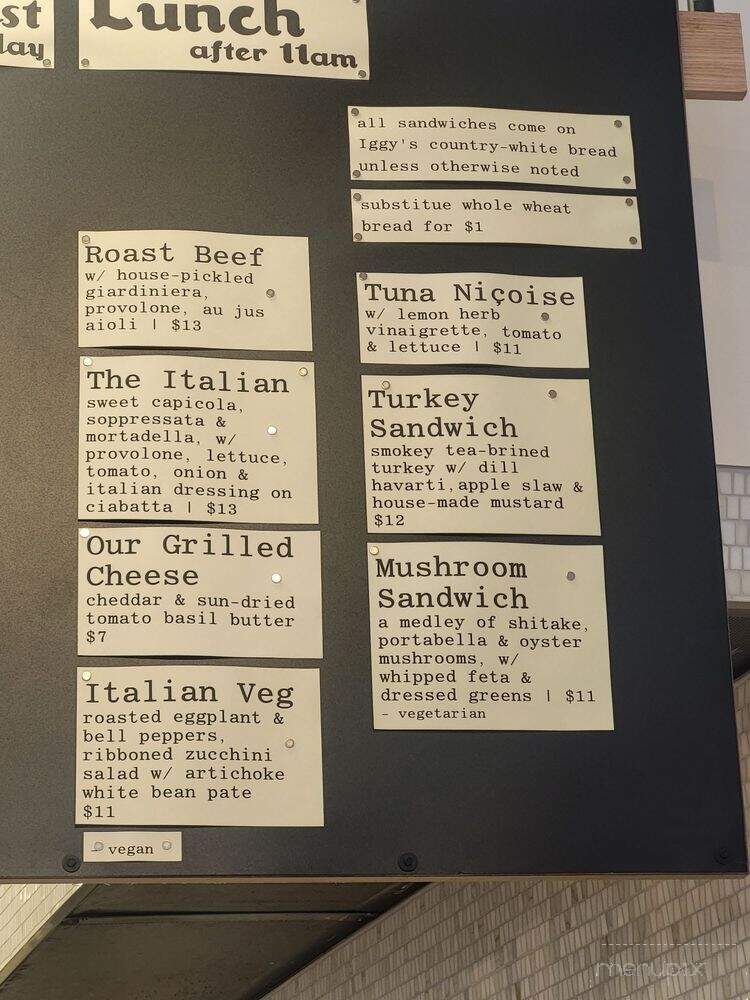 st
day
Lunch
after 11am
all sandwiches come on
Iggy's country-white bread
unless otherwise noted
substitue whole wheat
bread for $1
Roast Beef
w/ house-pickled
giardiniera,
provolone, au jus
aioli | $13
The Italian
sweet capicola,
soppressata &
mortadella, w/
provolone, lettuce,
tomato, onion &
italian dressing on
ciabatta | $13
Our Grilled
Cheese
cheddar & sun-dried
tomato basil butter
$7
Italian Veg
roasted eggplant &
bell peppers,
ribboned zucchini
salad w/ artichoke
white bean pate
$11
- vegan
Tuna Niçoise
w/ lemon herb
vinaigrette, tomato
& lettuce | $11
Turkey
Sandwich
smokey tea-brined
turkey w/ dill
havarti, apple slaw &
house-made mustard
$12
Mushroom
Sandwich
a medley of shitake,
portabella & oyster
mushrooms, w/
whipped feta &
dressed greens | $11
- vegetarian
menupix